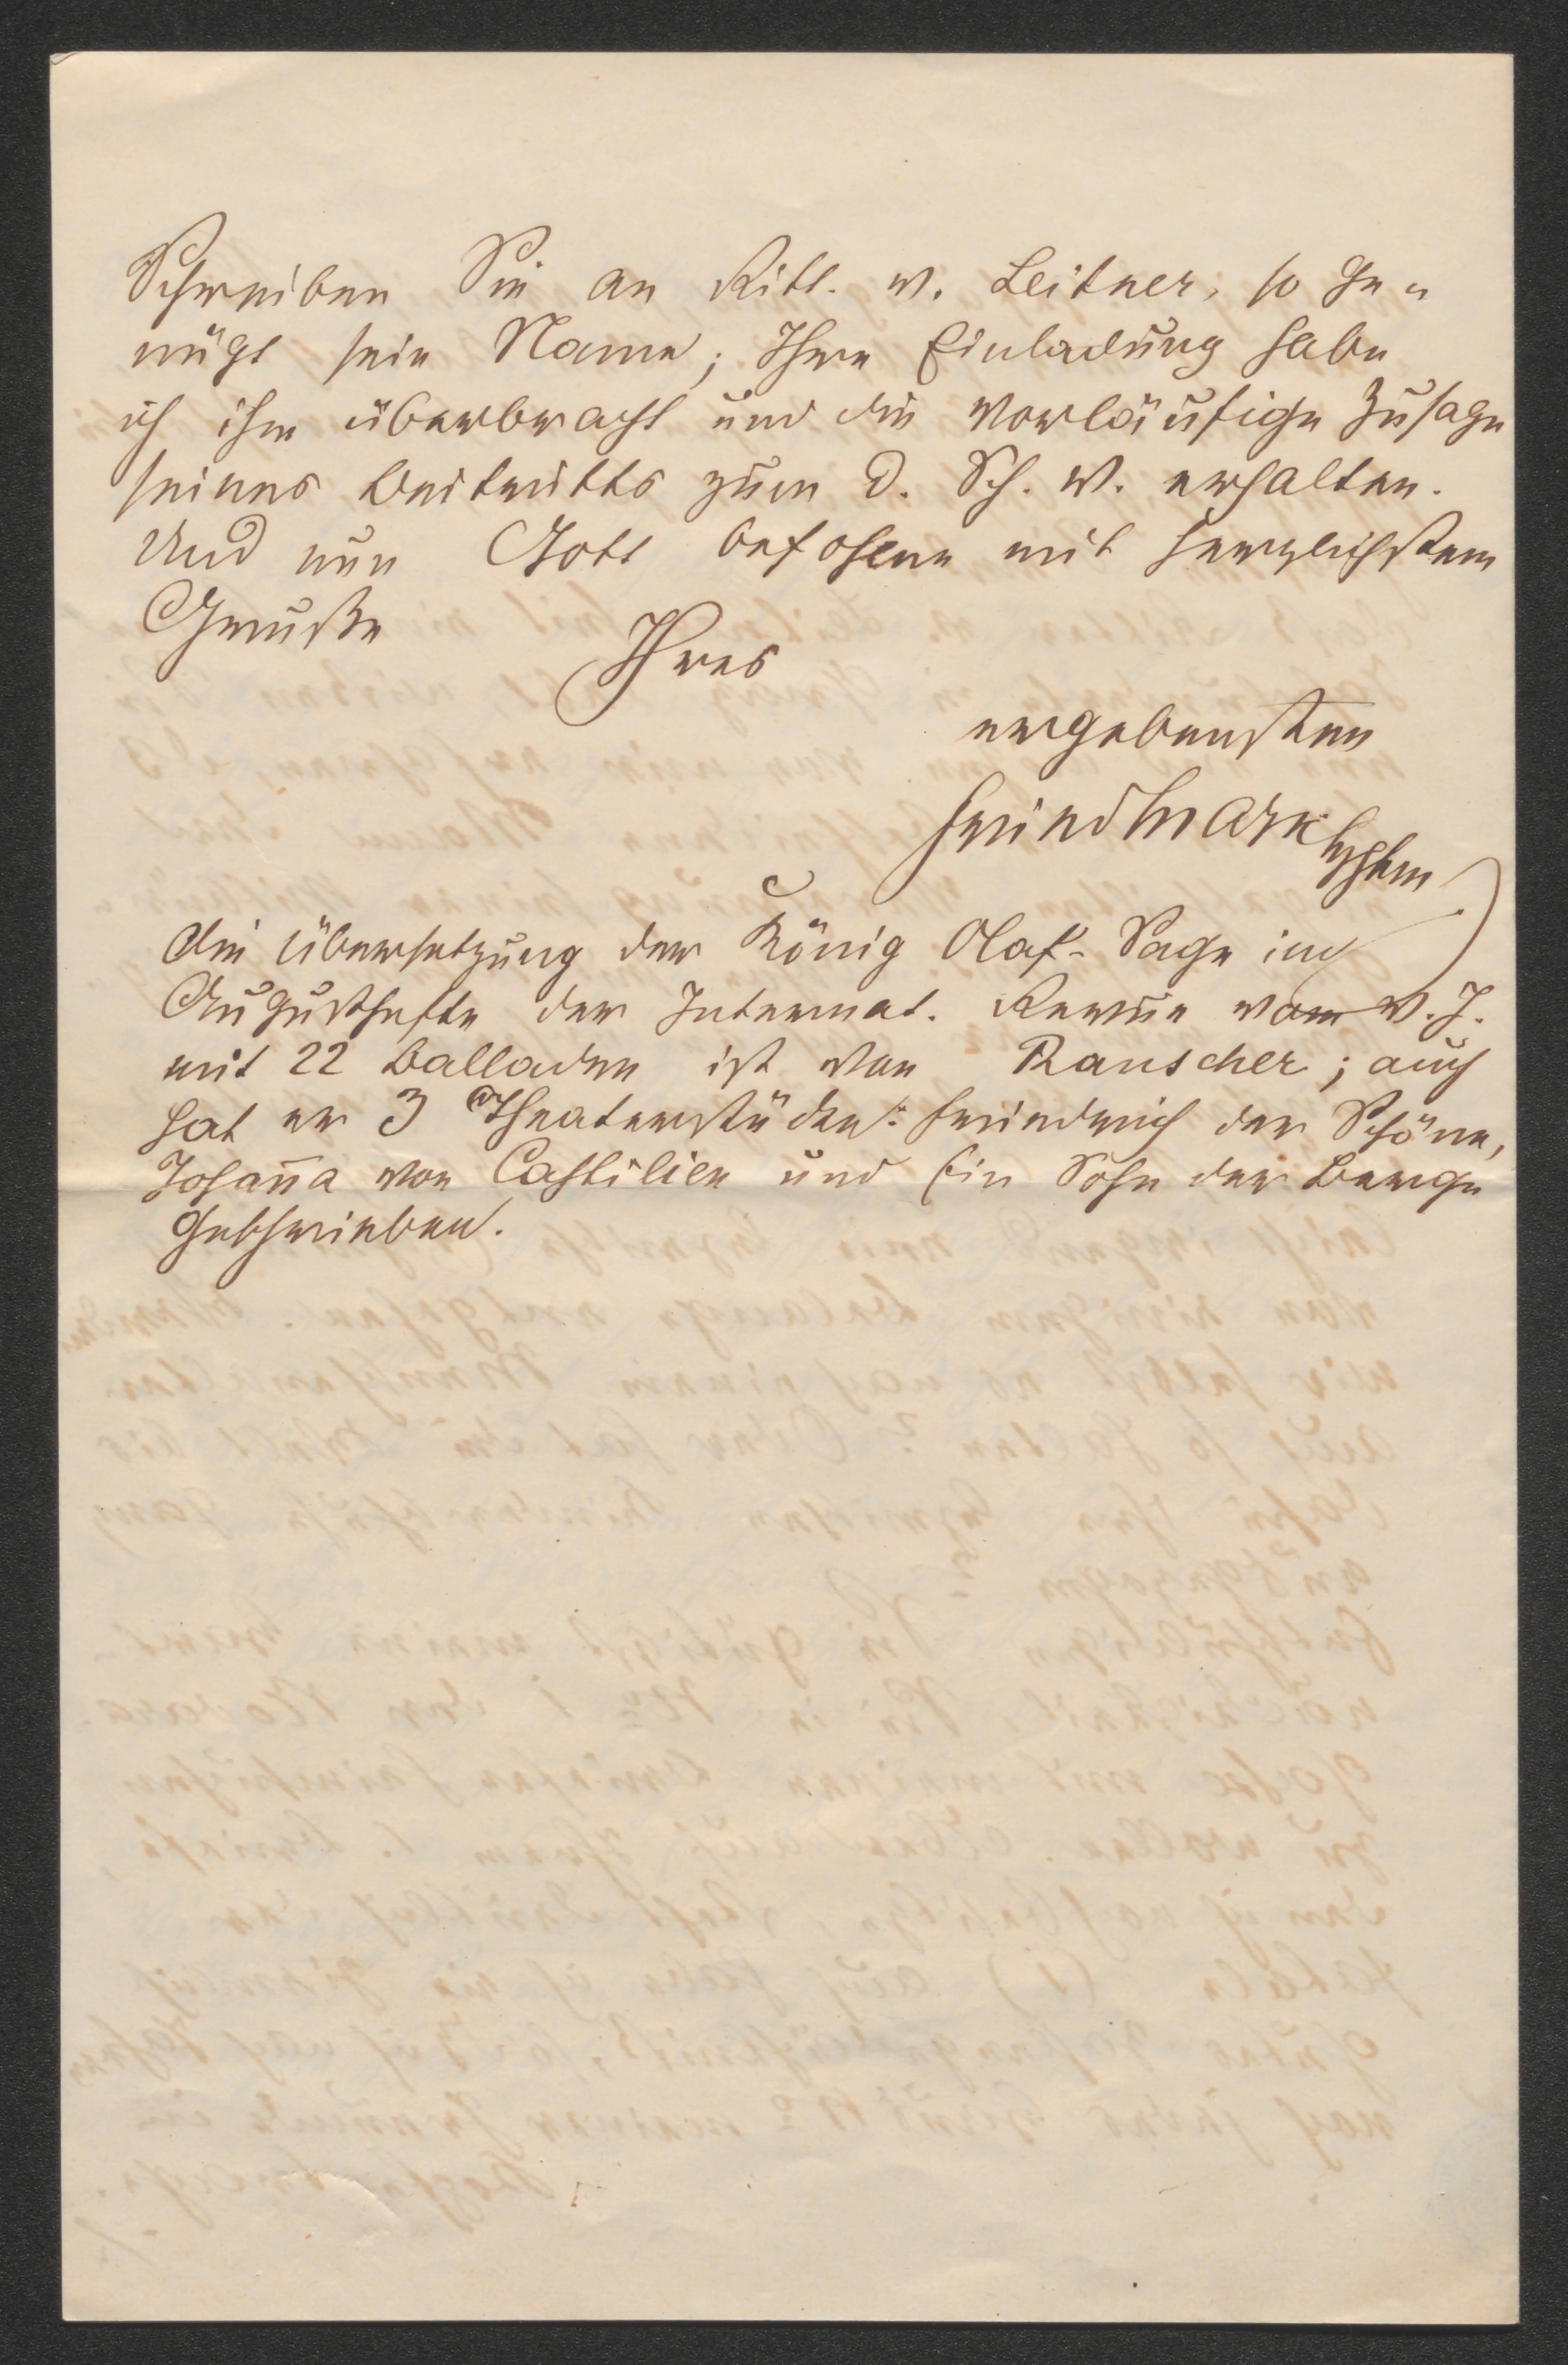 Schreiben Sie an Ritt. v. Leitner, so ge„
nügt sein Name; Ihre Einladung habe
ich ihm überbracht und die vorläufige Zusage
seines Beitritts zum D. Sch. V. erhalten.
Und nun Gott befohlen mit herzlichstem
Gruße
Ihres
ergebensten
Die Übersetzung der König Olaf-Sage im
Augusthefte der Internat. Revue vom v. J.
mit 22 Balladen ist von Rauscher; auch
hat er 3 Theaterstücke: Friedrich der Schöne,
Johan̄a von Castilien und Ein Sohn der Berge
geschrieben.